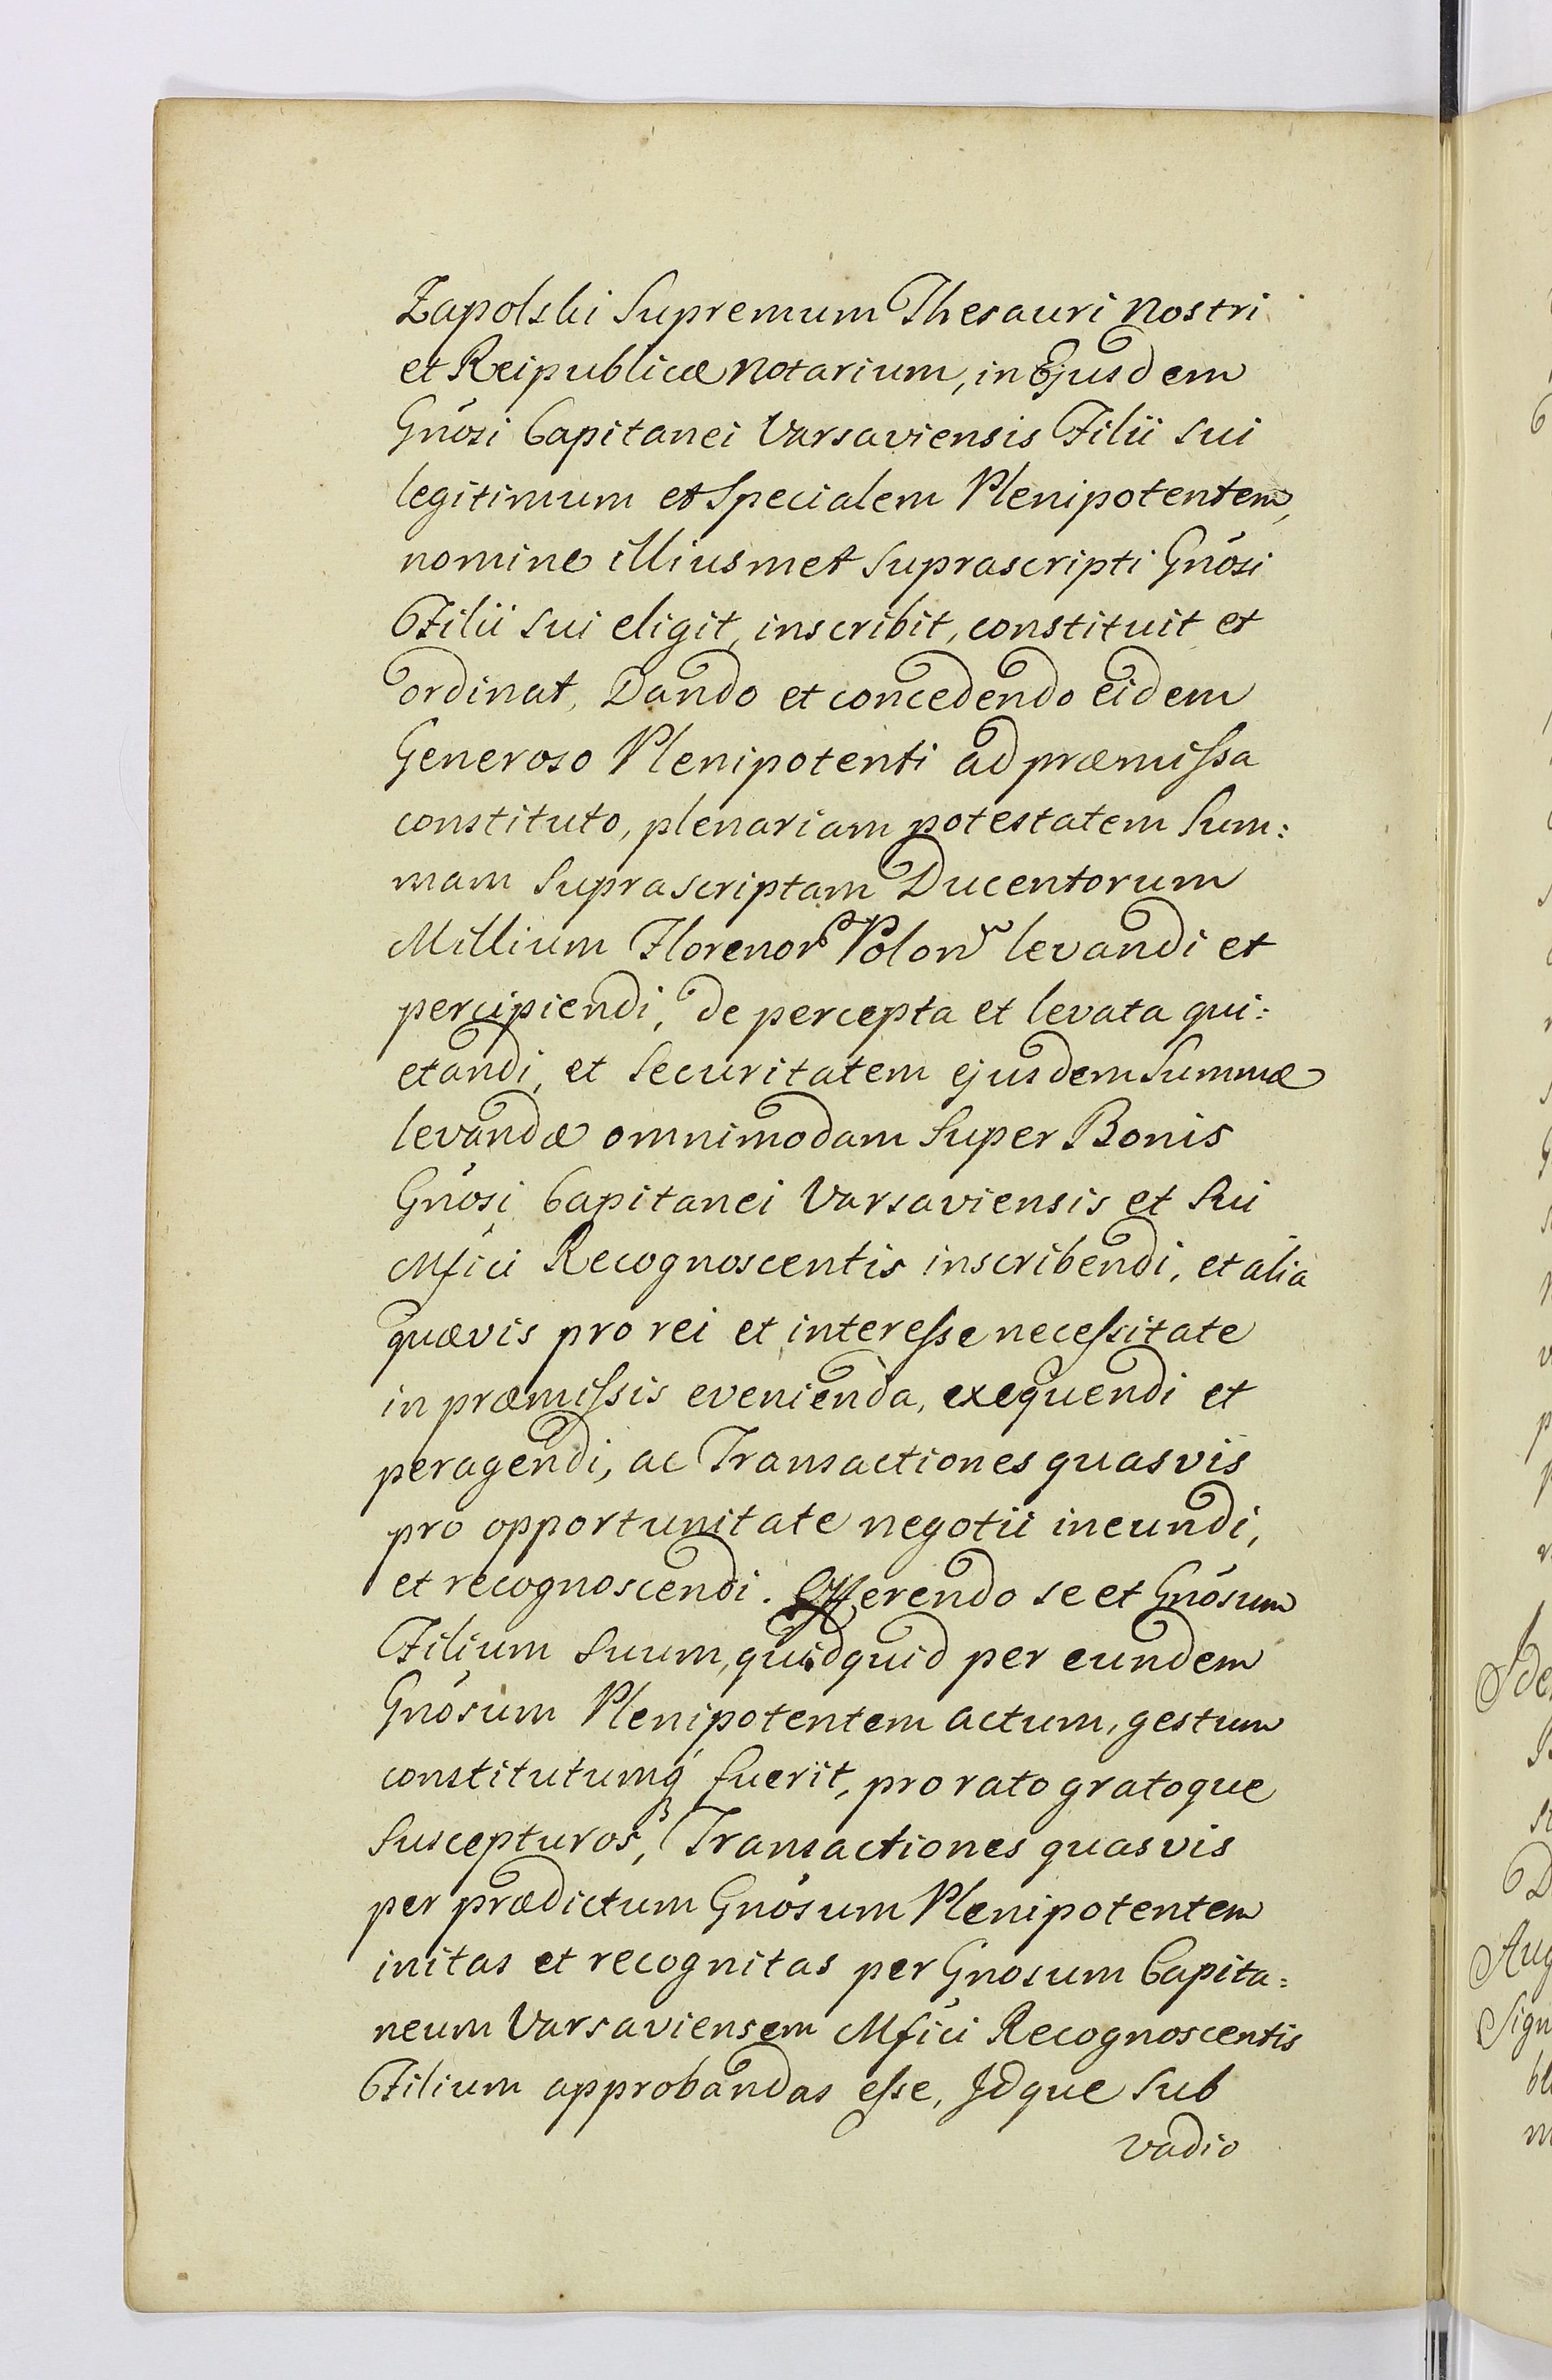 Zapolski Supremum Thesauri Nostri
et Reipublicæ Notarium, in Ejusdem
Gnösi Capitanei Varsaviensis Filii sui
legitimum et Specialem Plenipotentem,
nomine illiusmet suprascripti Gnösi
Filii sui eligit, inscribit, constituit et
ordinat, Dando et concedendo eidem
Generoso Plenipotenti ad præmissa
constituto, plenariam potestatem Sum:
mam Suprascriptam Ducentorum
Millium Florenor Polon levandi et
percipiendi, de percepta et levata qui:
etandi, et Securitatem ejusdem Summæ
levandæ omnimodam Super Bonis
Gnösi Capitanei Varsaviensis et Sui
Mfici Recognoscentis inscribendi, et alia
quævis pro rei et interesse necessitate
in præmissis evenienda, exequendi et
peragendi, ac Transactiones quasvis
pro opportunitate negotii ineundi,
et recognoscendi. Offerendo se et Gnösum
Filium Suum, quidquid per eundem
Gnösum Plenipotentem actum, gestum
constitutumq́ fuerit, pro rato gratoque
Suscepturos, Transactiones quasvis
per prædictum Gnösum Plenipotentem
initas et recognitas per Gnosum Capita=
neum Varsaviensem Mfici Recognoscentis
Filium approbandas esse, Idque Sub
vadio